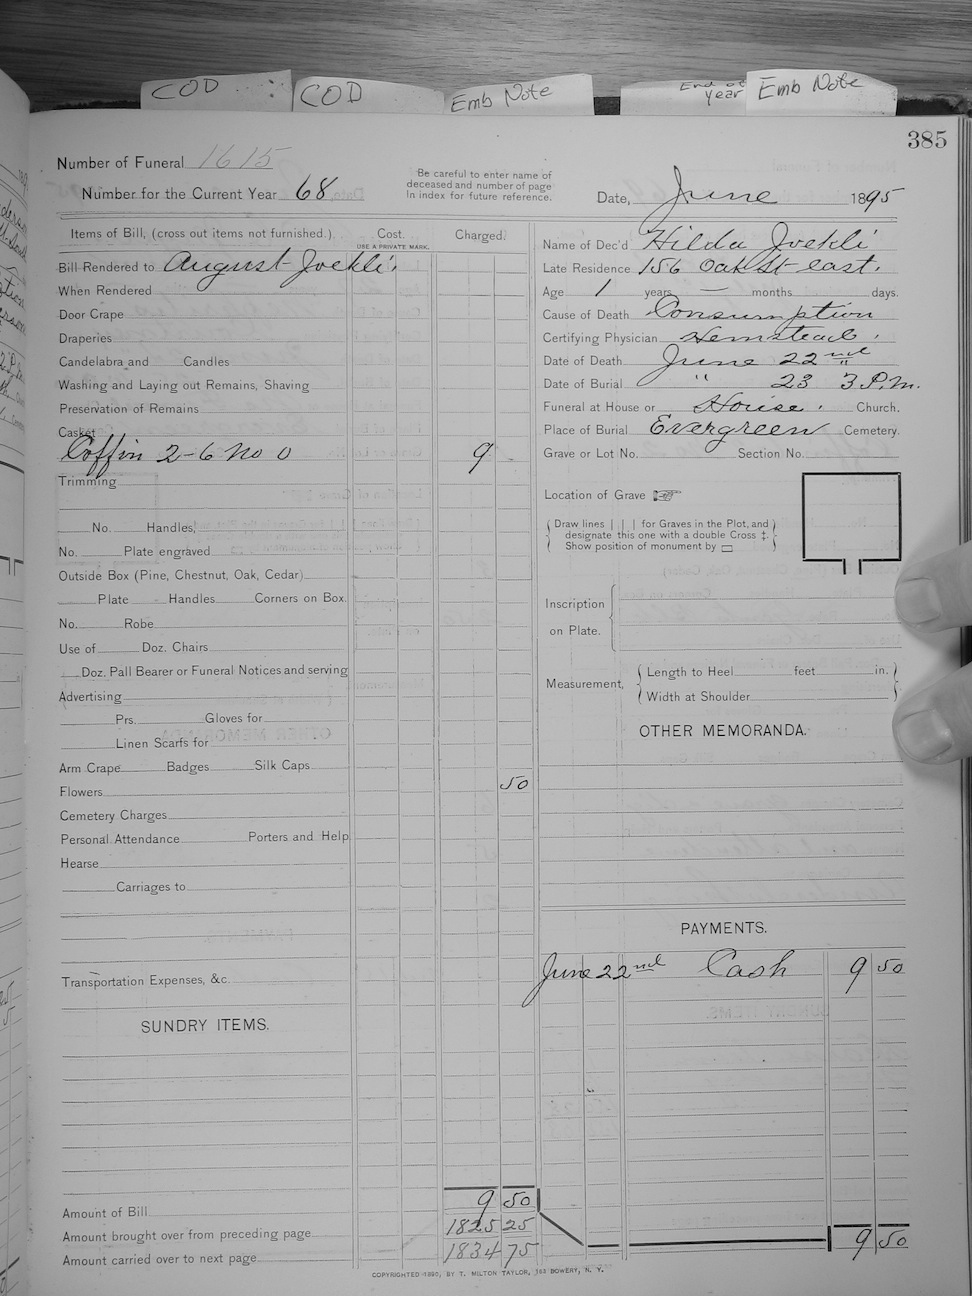 COD
COD
Emb Note
End of year
Emb Note
385
Number of Funeral 1615
Number for the Current Year 68
Be careful to enter name of
deceased and number of page
In index for future reference.
Date, June 1895
Items of Bill, (cross out items not furnished.)
Cost.
USE A PRIVATE MARK.
Charged.
Bill Rendered to August
When Rendered
Door Crape
Draperies
Candelabra and Candles
Washing and Laying out Remains, Shaving
Preservation of Remains
Casket
Coffin 2-6 No 0 9
Trimming
No. Handles,
No. Plate engraved
Outside Box (Pine, Chestnut, Oak, Cedar)
Plate Handles Corners on Box.
No. Robe
Use of Doz. Chairs
Doz. Pall Bearer or Funeral Notices and serving
Advertising
Prs. Gloves for
Linen Scarfs for
Arm Crape Badges Silk Caps
Flowers 50
Cemetery Charges
Personal Attendance Porters and Help
Hearse
Carriages to
Transportation Expenses, &c.
SUNDRY ITEMS.
Amount of Bill 9 50
Amount brought over from preceding page 1825 25
Amount carried over to next page 1834 75
Name of Dec'd Hilda
Late Residence 156 Oak St east.
Age 1 years — months days.
Cause of Death Consumption
Certifying Physician Hemstead.
Date of Death June 22nd
Date of Burial " 23 3 P.M.
Funeral at House or House. Church.
Place of Burial Evergreen Cemetery.
Grave or Lot No. Section No.
Location of Grave ☞
Draw lines | | | for Graves in the Plot, and
designate this one with a double Cross ‡.
Show position of monument by ▭
Inscription
on Plate.
Measurement,
Length to Heel feet in.
Width at Shoulder
OTHER MEMORANDA.
PAYMENTS.
June 22nd Cash 9 50
9 50
COPYRIGHTED 1890, BY T. MILTON TAYLOR, 163 BOWERY, N. Y.